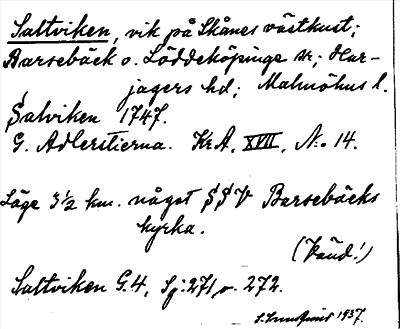 Saltviken, vik på Skånes västkust;
Barsebäck o. Löddeköpinge sr; Har-
jagers hd; Malmöhus l.
Salviken 1747.
G. Adlerstierna. KrA, XVII, N:o 14.
Läge 3 1/2 km. något S S V Barsebäcks
kyrka.
(Känd!)
Saltviken G.4, Sj: 271, o. 272.
1937.